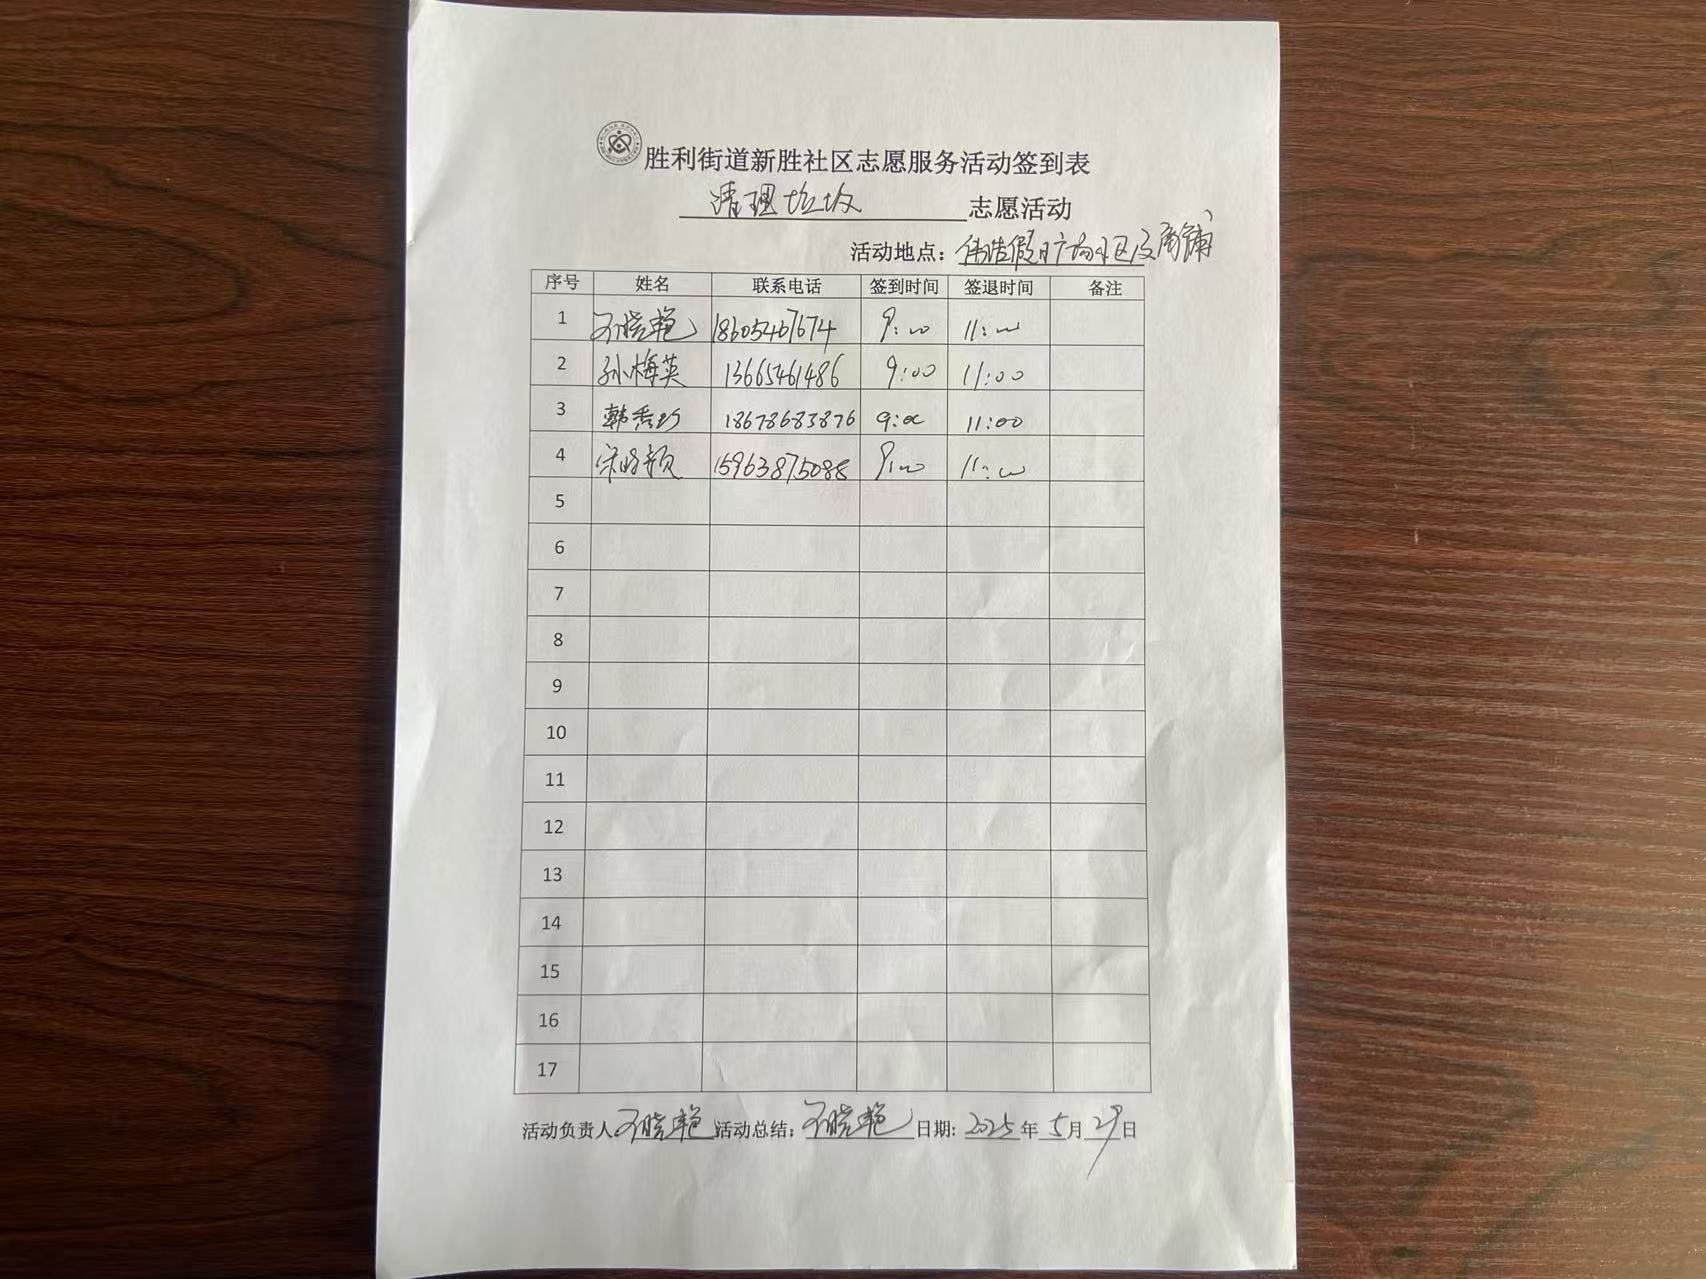 胜利街道新胜社区志愿服务活动签到表
清理垃圾 志愿活动
活动地点：伟浩假日广场小区及商铺
序号 姓名 联系电话 签到时间 签退时间 备注
1 晓艳 18605467674 9:00 11:00
2 孙梅英 13665461486 9:00 11:00
3 韩秀珍 18678683876 9:00 11:00
4 宋 15963875088 9:00 11:00
5
6
7
8
9
10
11
12
13
14
15
16
17
活动负责人：晓艳 活动总结：晓艳 日期：2025年5月29日